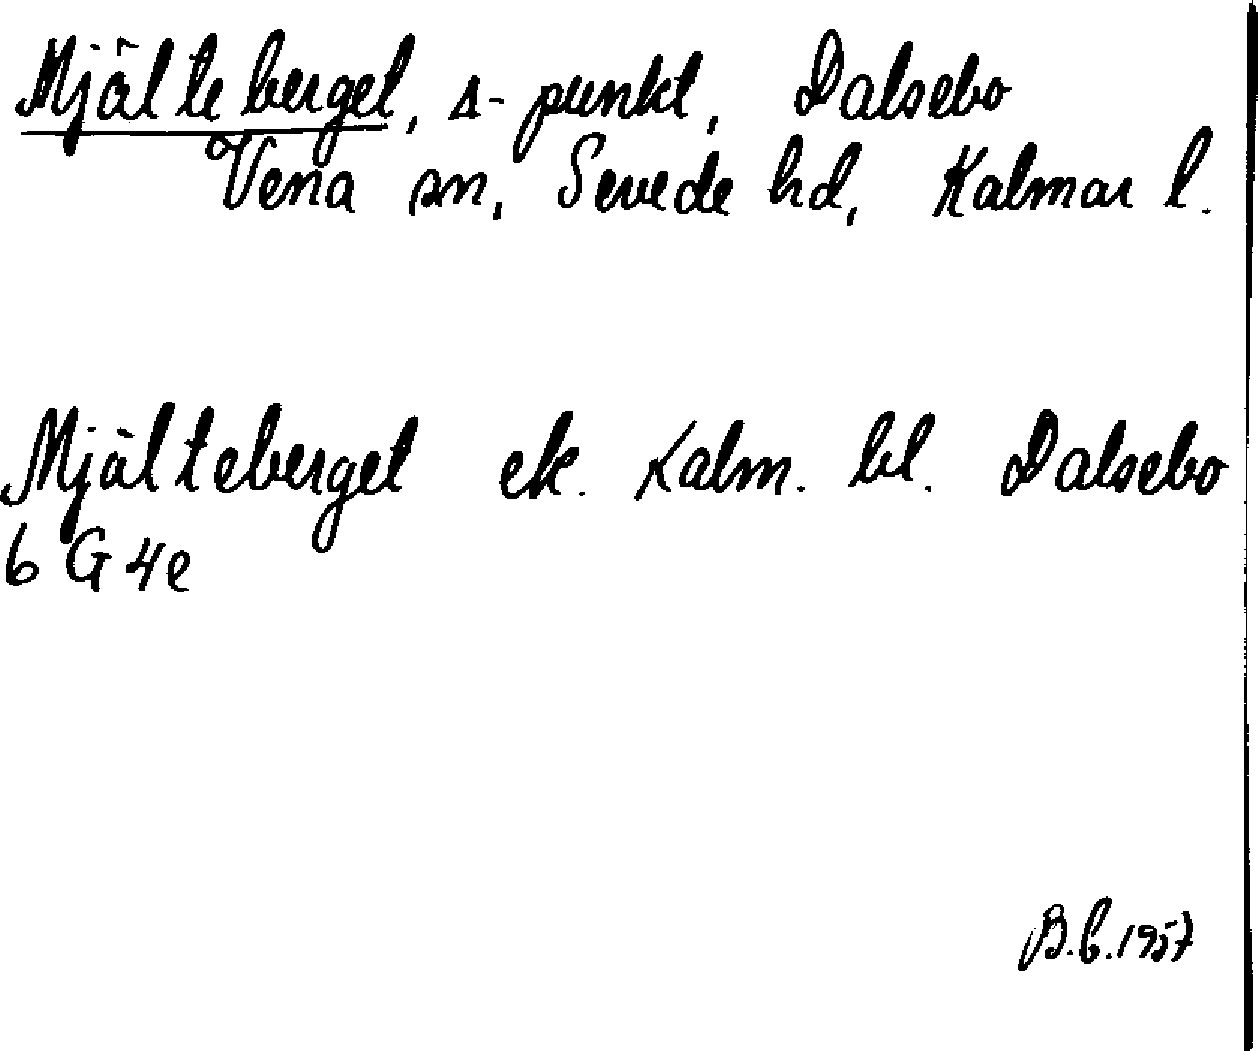 Mjälteberget, Δ-punkt, Dalsebo
Vena sn, Sevede hd, Kalmar l.
Mjälteberget ek. Kalm. bl. Dalsebo
6 G 4e
B.C. 1957